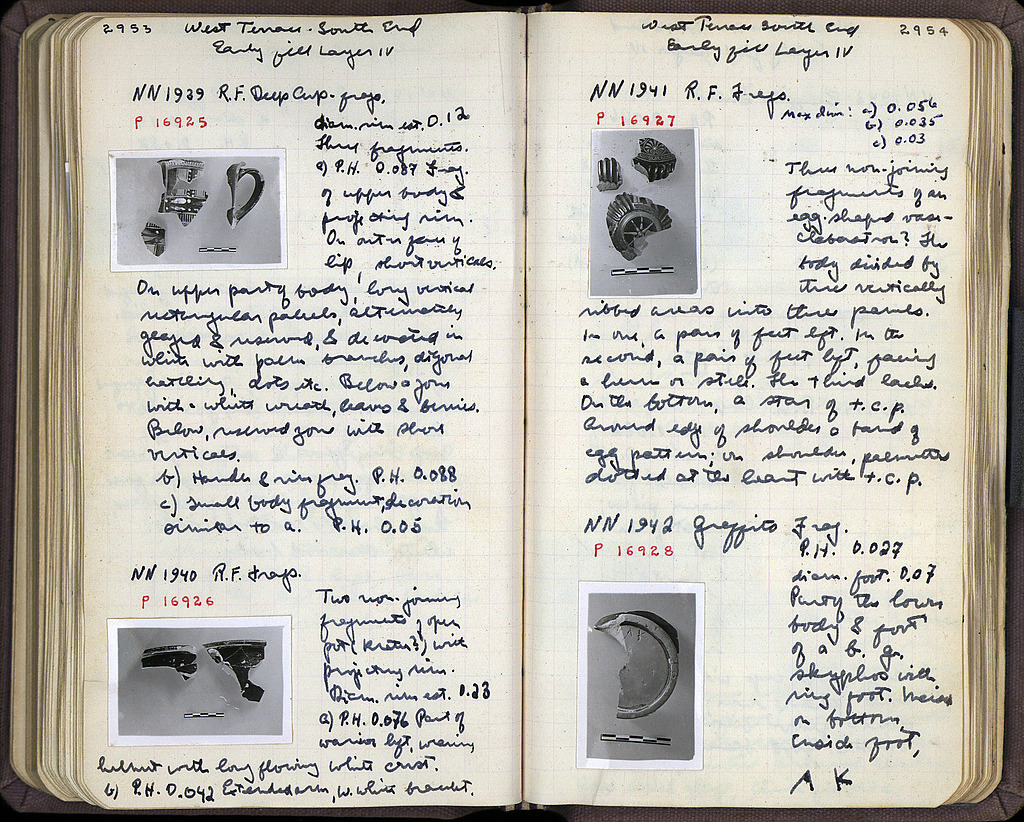 2953 West Terrace - South End
Early fill Layer IV
NN 1939 R.F. Deep Cup - frags.
P 16925
diam. rim est. 0.12
Three fragments.
a) P.H. 0.087 Frag.
of upper body &
projecting rim.
On outer face of
lip, short verticals.
On upper part of body, long vertical
rectangular panels, alternately
glazed & reserved, & decorated in
white with palm branches, diagonal
hatching, dots etc. Below a zone
with a white wreath, leaves & berries.
Below, reserved zone with short
verticals.
b) Handle & rim frag. P.H. 0.088
c) Small body fragment, decoration
similar to a. P.H. 0.05
NN 1940 R.F. Frags.
P 16926
Two non-joining
fragments of open
pot (krater?) with
projecting rim.
Diam. rim est. 0.23
a) P.H. 0.076 Part of
warrior left, wearing
helmet with long flowing white crest.
b) P.H. 0.042 Extended arm, w. white bracelet.
West Terrace South End 2954
Early fill Layer IV
NN 1941 R.F. Frags.
P 16927
Max dim: a) 0.056
b) 0.035
c) 0.03
Three non-joining
fragments of an
egg shaped vase -
The
body divided by
three vertically
ribbed areas into three panels.
In one, a pair of feet left. In the
second, a pair of feet left, facing
a or stele. The third lacks.
On the bottom, a star of t.c.p.
Around edge of shoulder a band of
egg pattern; on shoulder, palmettes
dotted at the heart with t.c.p.
NN 1942 Graffito Frag.
P 16928
P.H. 0.027
diam. foot. 0.07
Part of the lower
body & foot
of a b. gl.
skyphos with
ring foot. Incised
on bottom,
inside foot,
A K